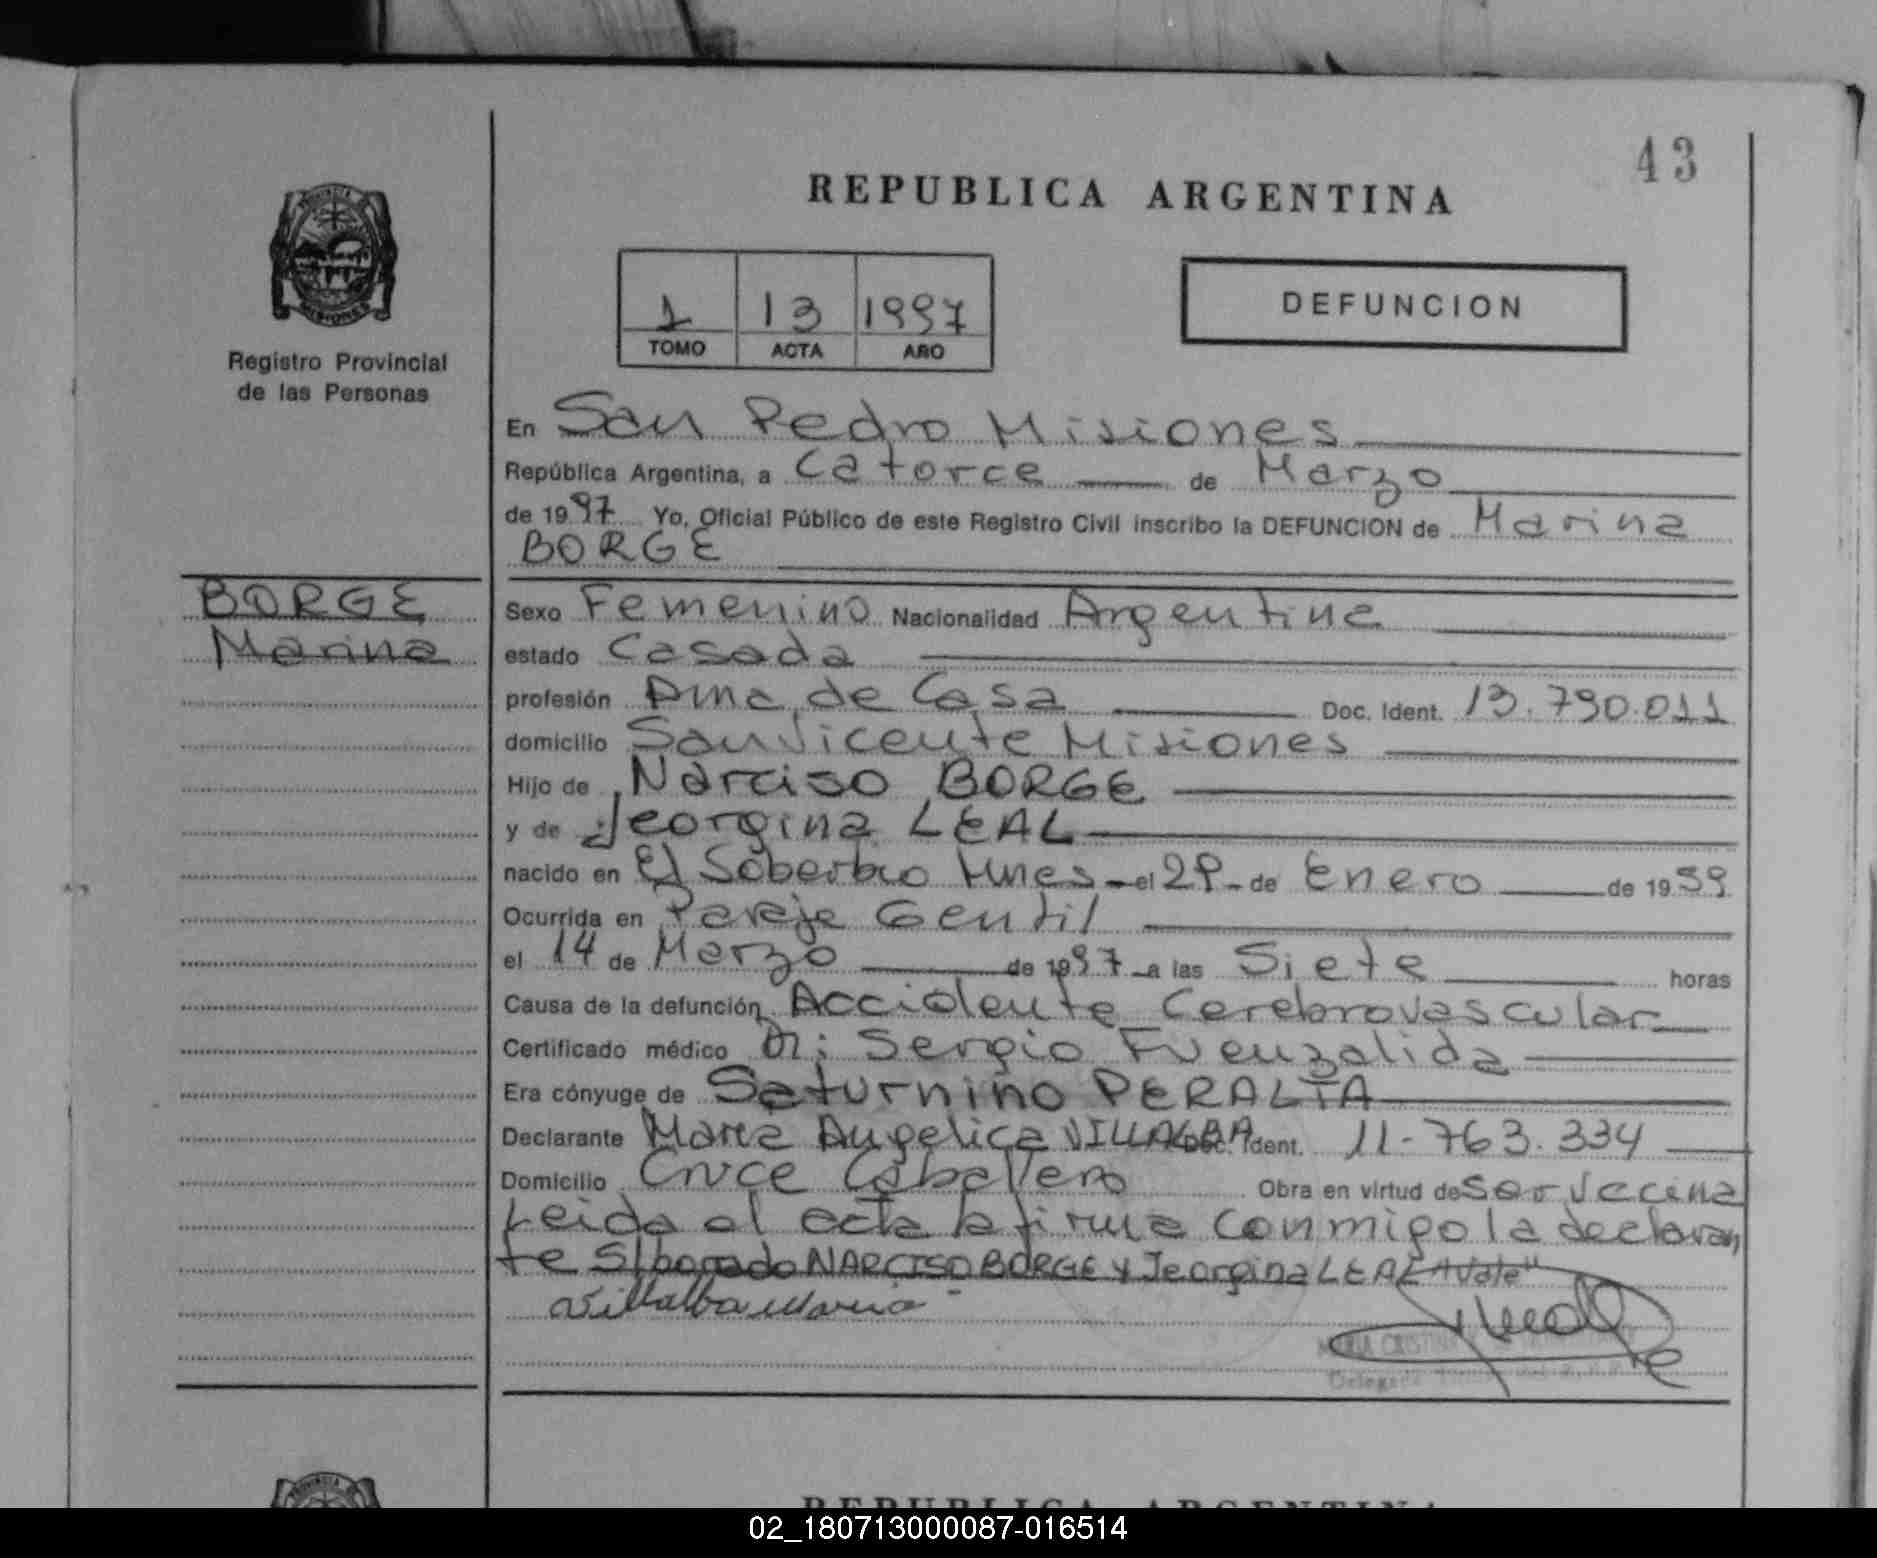 43
REPUBLICA ARGENTINA
PROVINCIA DE
MISIONES
Registro Provincial
de las Personas
1 13 1997
TOMO ACTA AÑO
DEFUNCION
En San Pedro Misiones
República Argentina, a Catorce de Marzo
de 1997 Yo, Oficial Público de este Registro Civil inscribo la DEFUNCION de Marina
BORGE
BORGE
Marina
Sexo Femenino Nacionalidad Argentina
estado Casada
profesión Ama de Casa Doc. Ident. 13.790.011
domicilio San Vicente Misiones
Hijo de Narciso BORGE
y de Jeorgina LEAL
nacido en El Soberbio Mnes - el 29 - de Enero de 1959
Ocurrida en Paraje Gentil
el 14 de Marzo de 1997 a las Siete horas
Causa de la defunción Accidente Cerebrovascular
Certificado médico Dr: Sergio Fuenzalida
Era cónyuge de Saturnino PERALTA
Declarante Maria Angelica VILLALBA Doc. Ident. 11-763.334
Domicilio Cruce Caballero Obra en virtud de Ser Vecina
Leida el acta la firma conmigo la declaran
te S/borrado NARCISO BORGE y Jeorgina LEAL "Vale"
Villalba Maria
MARIA CRISTINA
Delegada
REPUBLICA ARGENTINA
02_180713000087-016514